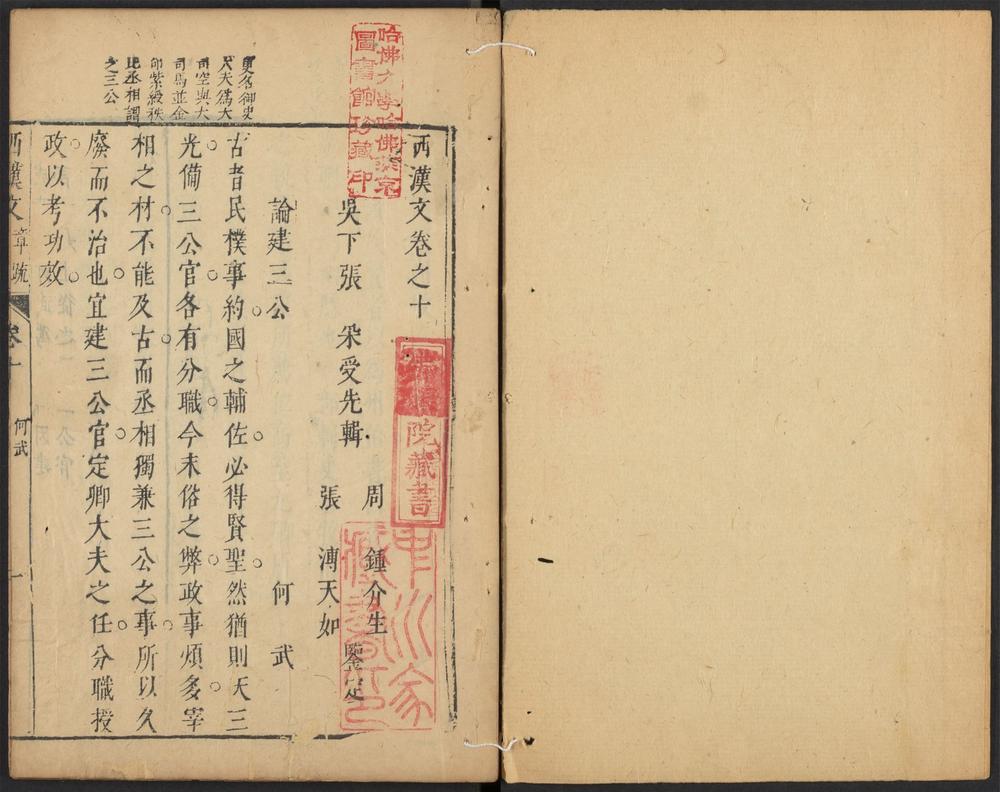 西漢文卷之十
吳下張　采受先輯
周　鍾介生
張　溥天如
鑒定
論建三公
何　武
古者民樸事約國之輔佐必得賢聖然猶則天三
光備三公官各有分職今末俗之弊政事煩多宰
相之材不能及古而丞相獨兼三公之事所以久
廢而不治也宜建三公官定卿大夫之任分職授
政以考功效
更名御史
大夫爲大
司空與大
司馬並金
印紫綬秩
比丞相謂
之三公
西漢文
疏
卷十
何武
一
哈佛大學哈佛燕京
圖書館珍藏印
院藏書